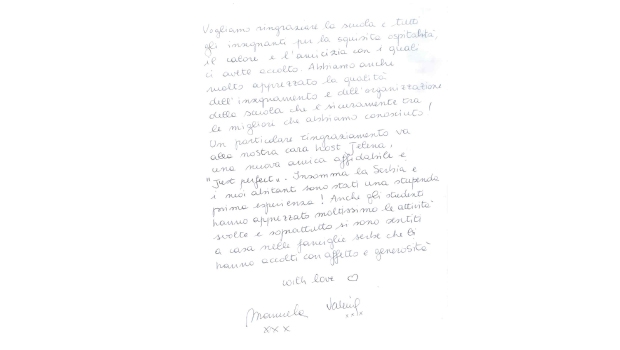 Vogliamo ringraziare la scuola e tutti
gli insegnanti per la squisita ospitalità,
il calore e l'amicizia con i quali
ci avete accolto. Abbiamo anche
molto apprezzato la qualità
dell'insegnamento e dell'organizzazione
della scuola che è sicuramente tra
le migliori che abbiamo conosciuto!
Un particolare ringraziamento va
alla nostra cara host Jelena,
una nuova amica affidabile e
"Just perfect". Insomma la Serbia e
i suoi abitanti sono stati una stupenda
prima esperienza! Anche gli studenti
hanno apprezzato moltissimo le attività
svolte e soprattutto si sono sentiti
a casa nelle famiglie serbe che li
hanno accolti con affetto e generosità
with love
Manuela
xxx xxx